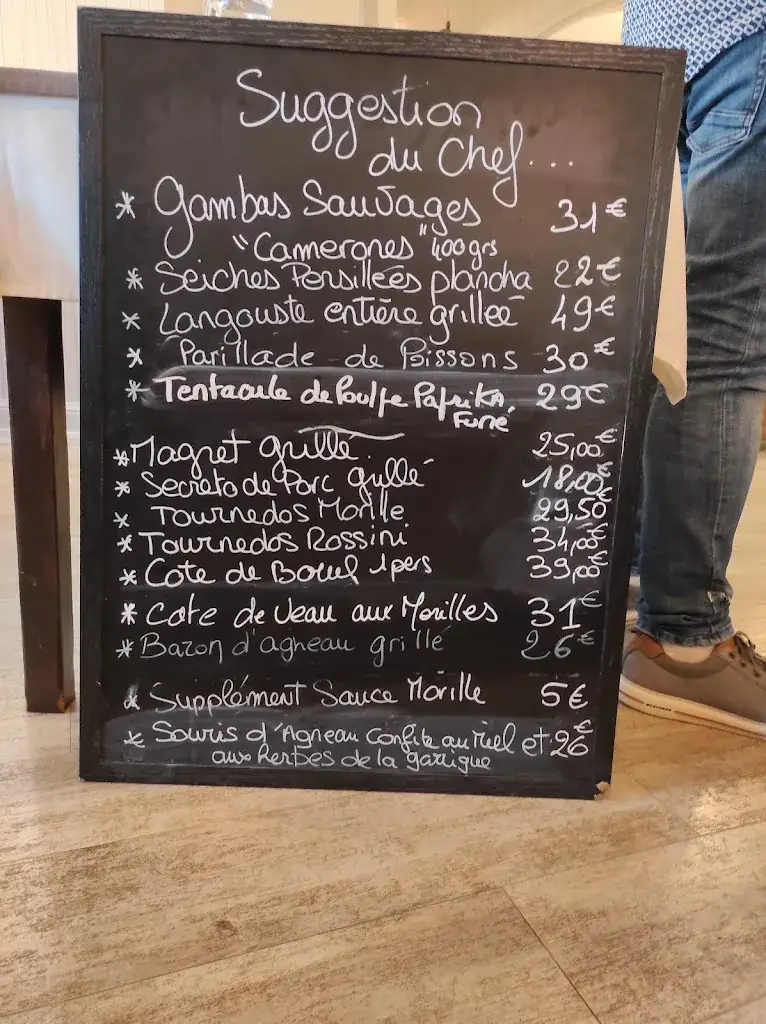 Suggestion
du Chef...
* Gambas Sauvages 31€
"Camerones" 400grs
* Seiches Persillées plancha 22€
* Langouste entière grilleé 49€
* Parillade de Poissons 30€
* Tentacule de Poulpe Paprika, 29€
Fumé
* Magret grillé. 25,00€
* Secreto de Porc grillé 18,00€
* Tournedos Morille 29,50€
* Tournedos Rossini 34,00€
* Cote de Boeuf 1pers 39,00€
* Cote de Veau aux Morilles 31€
* Baron d'agneau grillé 26€
* Supplément Sauce Morille 5€
* Souris d'Agneau Confite au Miel et 26€
aux herbes de la garrigue